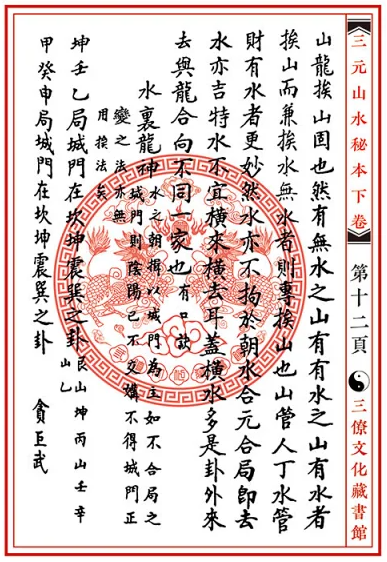 三元山水秘本下卷
第十二頁
三僚文化藏書館
山龍挨山固也然有無水之山有有水之山有水者
挨山而兼挨水無水者則專挨山也山管人丁水管
財有水者更妙然水亦不拘於朝水合元合局即去
水亦吉特水不宜橫來橫去耳蓋橫水多是卦外來
去與龍合向不同一家也有口訣
水裏龍神水之朝揖以城門為主如不合局之
城門則陰陽已不交媾不得城門正
變之法亦無
用挨法矣
坤壬乙局城門在坎坤震巽之卦艮山坤丙山壬辛
山乙
甲癸申局城門在坎坤震巽之卦 貪巨武